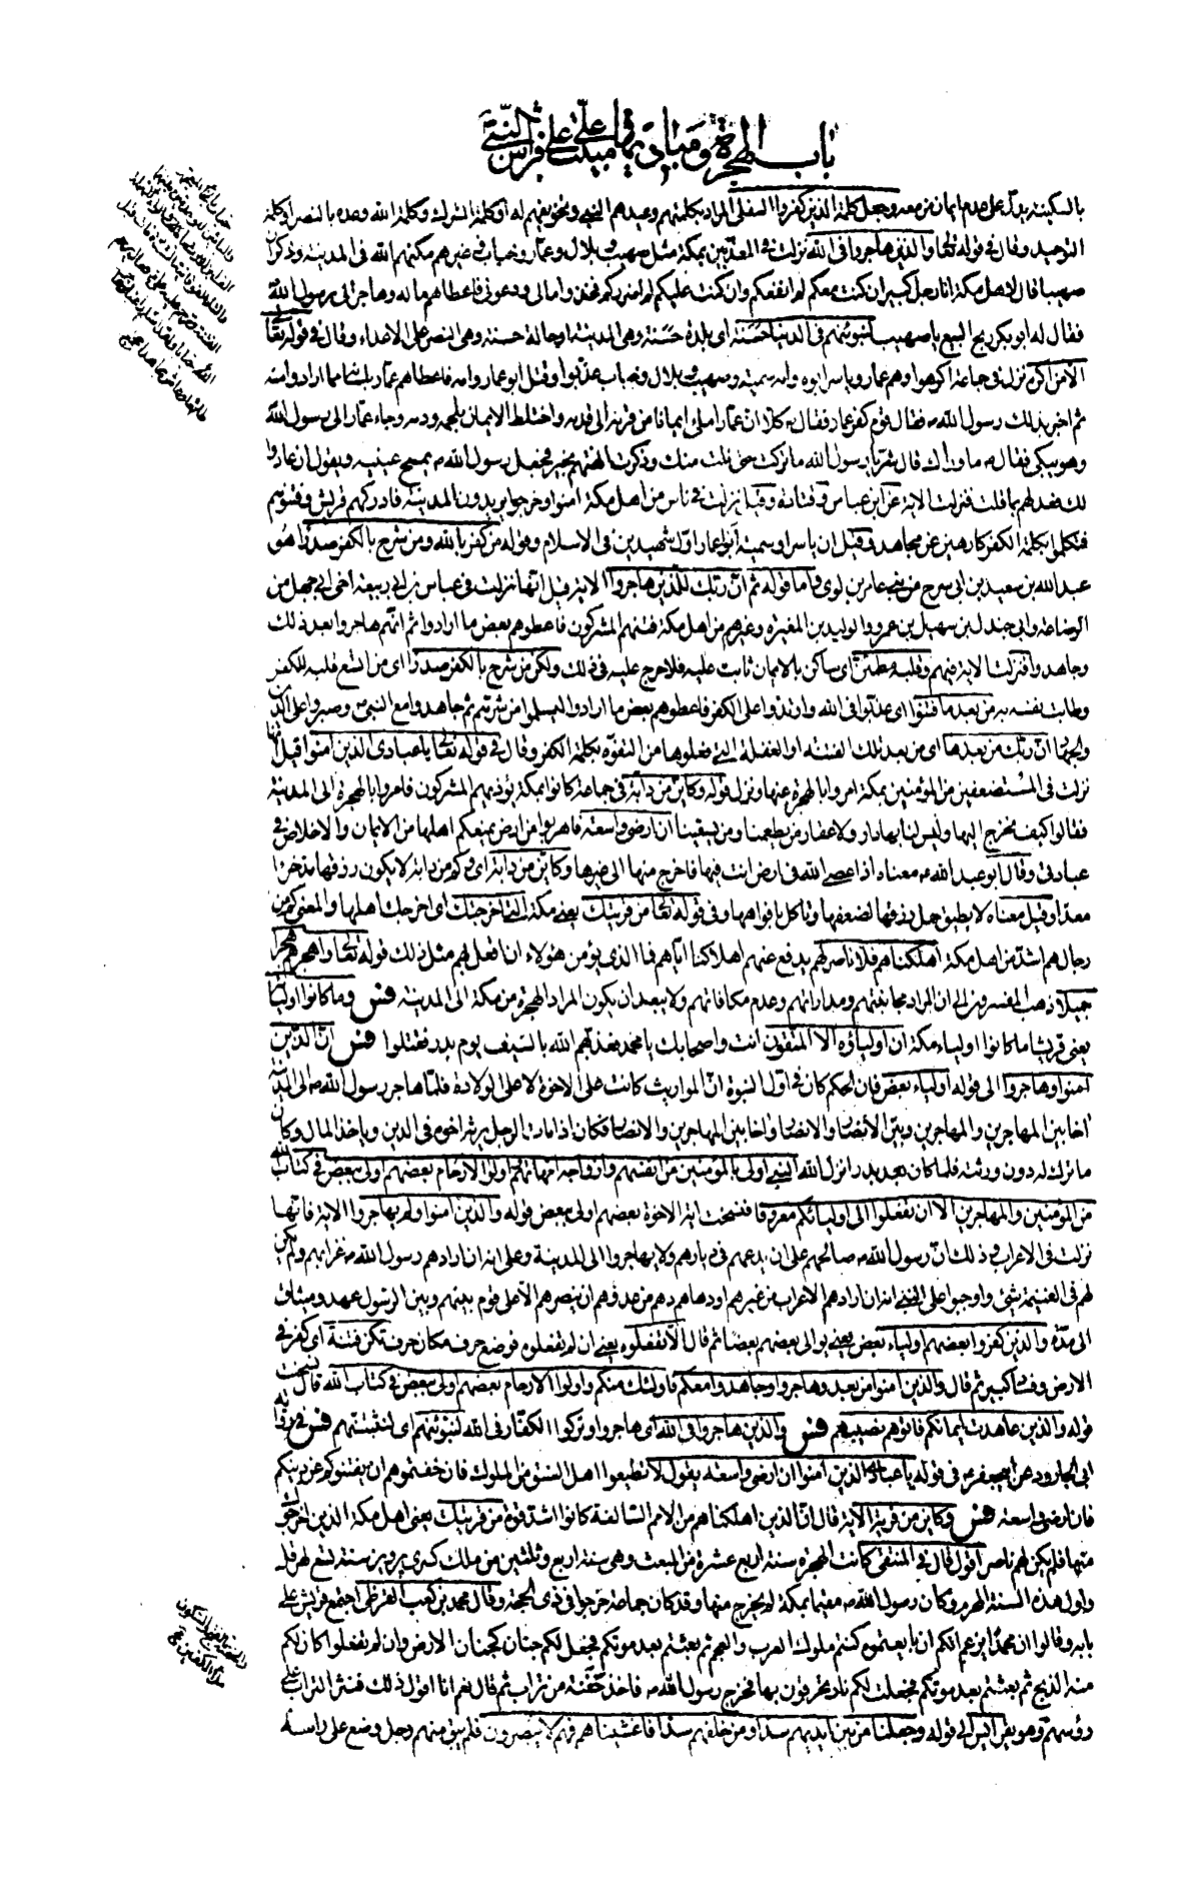 باب الهجرة ومباديها ومبيت علي على فراش النبي
بالسكينة يدل على عدم ايمان من معه وجعل كلمة الذين كفروا السفلى المراد بكلمتهم وعيدهم النبي وتخويفهم له او كلمة الشرك وكلمة الله وعده بالنصر او كلمة
التوحيد وقال في قوله تعالى والذين هاجروا في الله نزلت في المعذبين بمكة مثل صهيب وبلال وعمار وخباب وغيرهم مكنهم الله في المدينة وذكر ان
صهيبا قال لاهل مكة انا رجل كبير ان كنت معكم لم انفعكم وان كنت عليكم لم اضركم فخذوا مالي ودعوني فاعطاهم ماله وهاجر الى رسول الله
فقال له ابو بكر ربح البيع يا صهيب لنبوئنهم في الدنيا حسنة اي بلدة حسنة وهي المدينة او حالة حسنة وهي النصر على الاعداء وقال في قوله تعالى
الا من اكره نزل في جماعة اكرهوا وهم عمار وياسر ابوه وامه سمية وصهيب وبلال وخباب عذبوا وقتل ابو عمار وامه فاعطاهم عمار بلسانه ما ارادوا منه
ثم اخبر بذلك رسول الله ص فقال قوم كفر عمار فقال ص كلا ان عمارا ملئ ايمانا من قرنه الى قدمه واختلط الايمان بلحمه ودمه وجاء عمار الى رسول الله
وهو يبكي فقال ص ما وراك قال شر يا رسول الله ما تركت حتى نلت منك وذكرت الهتهم بخير فجعل رسول الله ص يمسح عينيه ويقول ان عادوا
لك فعد لهم بما قلت فنزلت الاية عن ابن عباس وقتادة وقيل نزلت في ناس من اهل مكة امنوا وخرجوا يريدون المدينة فادركهم قريش وفتنوهم
فتكلموا بكلمة الكفر كارهين عن مجاهد وقيل ان ياسر وسمية ابوا عمار اول شهيدين في الاسلام وقوله من كفر بالله ومن شرح بالكفر صدرا هو
عبد الله بن سعيد بن ابي سرح من بني عامر بن لوي واما قوله ثم ان ربك للذين هاجروا الاية قيل انها نزلت في عياش بن ابي ربيعة اخي ابي جهل من
الرضاعة وابي جندل بن سهيل بن عمرو والوليد بن المغيرة وغيرهم من اهل مكة فتنهم المشركون فاعطوهم بعض ما ارادوا ثم انهم هاجروا بعد ذلك
وجاهدوا فنزلت الاية فيهم وقلبه مطمئن اي ساكن بالايمان ثابت عليه فلا حرج عليه في ذلك ولكن من شرح بالكفر صدرا اي من اتسع قلبه للكفر
وطابت نفسه به من بعد ما فتنوا اي عذبوا في الله وارتدوا على الكفر فاعطوهم بعض ما ارادوا ليسلموا من شرهم ثم جاهدوا مع النبي ص وصبروا على الدين
والجهاد ان ربك من بعدها اي من بعد تلك الفتنة او الفعلة التي فعلوها من التفوه بكلمة الكفر وقال في قوله تعالى يا عبادي الذين امنوا قيل انها
نزلت في المستضعفين من المؤمنين بمكة امروا بالهجرة عنها ونزل قوله وكاين من دابة في جماعة كانوا بمكة يؤذيهم المشركون فامروا بالهجرة الى المدينة
فقالوا كيف نخرج اليها وليس لنا بها دار ولا عقار من يطعمنا ومن يسقينا ان ارضي واسعة فاهربوا من ارض يمنعكم اهلها من الايمان والاخلاص في
عبادتي وقال ابو عبد الله ع معناه اذا عصي الله في ارض انت فيها فاخرج منها الى غيرها وكاين من دابة اي وكم من دابة لا يكون رزقها مدخرا
معدا وقيل معناه لا يطيق حمل رزقها لضعفها وتاكل بافواهها وفي قوله تعالى من قريتك يعني مكة التي اخرجتك اي اخرجك اهلها والمعنى كم من
رجال هم اشد من اهل مكة اهلكناهم فلا ناصر لهم يدفع عنهم اهلاكنا اياهم فما الذي يؤمن هؤلاء ان افعل بهم مثل ذلك قوله تعالى واهجرهم هجرا
جميلا ذهب المفسرون الى ان المراد مجانبتهم ومداراتهم وعدم مكافاتهم ولا يبعد ان يكون المراد الهجرة من مكة الى المدينة فس وما كانوا اولياءه
يعني قريشا ما كانوا اولياء مكة ان اولياؤه الا المتقون انت واصحابك يا محمد فعذبهم الله بالسيف يوم بدر فقتلوا فس ان الذين
امنوا وهاجروا الى قوله اولياء بعض فان الحكم كان في اول النبوة ان المواريث كانت على الاخوة لا على الولادة فلما هاجر رسول الله ص الى المدينة
اخا بين المهاجرين والمهاجرين وبين الانصار والانصار واخا بين المهاجرين والانصار فكان اذا مات الرجل يرثه اخوه في الدين وياخذ المال وكان
ما ترك له دون ورثته فلما كان بعد بدر انزل الله النبي اولى بالمؤمنين من انفسهم وازواجه امهاتهم واولوا الارحام بعضهم اولى ببعض في كتاب الله
من المؤمنين والمهاجرين الا ان تفعلوا الى اوليائكم معروفا فنسخت اية الاخوة بعضهم اولى ببعض قوله والذين امنوا ولم يهاجروا الاية فانها
نزلت في الاعراب وذلك ان رسول الله ص صالحهم على ان يدعهم في ديارهم ولا يهاجروا الى المدينة وعلى انه ان ارادهم رسول الله ص غزا بهم ولم يكن
لهم في الغنيمة شيء واوجبوا على النبي انه ان ارادهم الاعراب من غيرهم او دهاهم دهم من عدوهم ان ينصرهم الا على قوم بينهم وبين الرسول عهد وميثاق
الى مدة والذين كفروا بعضهم اولياء بعض يعني يوالي بعضهم بعضا ثم قال الا تفعلوه يعني ان لم تفعلوه فوضع حرف مكان حرف تكن فتنة اي كفر في
الارض وفساد كبير ثم قال والذين امنوا من بعد وهاجروا وجاهدوا معكم فاولئك منكم واولوا الارحام بعضهم اولى ببعض في كتاب الله قال نسخت
قوله والذين عاهدت ايمانكم فاتوهم نصيبهم فس والذين هاجروا في الله اي هاجروا وتركوا الكفار في الله لنبوئنهم اي لنثبتنهم فس في رواية
ابي الجارود عن ابي جعفر ع في قوله يا عبادي الذين امنوا ان ارضي واسعة يقول لا تطيعوا اهل الفسق من الملوك فان خفتموهم ان يفتنوكم عن دينكم
فان ارضي واسعة فس وكاين من قرية الاية قال ان الذين اهلكناهم من الامم السالفة كانوا اشد قوة من قريتك يعني اهل مكة الذين اخرجوك
منها فلم يكن لهم ناصر اقول قال في المنتقى كانت الهجرة سنة اربع عشرة من المبعث وهي سنة اربع وثلثين من ملك كسرى پرويز سنة تسع لهرقل
واول هذه السنة المحرم وكان رسول الله ص مقيما بمكة لم يخرج منها وقد كان جماعة خرجوا في ذي الحجة وقال محمد بن كعب القرظي اجتمع قريش على
بابه وقالوا ان محمدا يزعم انكم ان بايعتموه كنتم ملوك العرب والعجم ثم بعثتم بعد موتكم فجعل لكم جنان كجنان الارض وان لم تفعلوا كان لكم
منه الذبح ثم بعثتم بعد موتكم فجعلت لكم نار تحرقون بها فخرج رسول الله ص فاخذ حفنة من تراب ثم قال نعم انا اقول ذلك فنثر التراب على
رؤسهم وهو يقرأ يس الى قوله وجعلنا من بين ايديهم سدا ومن خلفهم سدا فاغشيناهم فهم لا يبصرون فلم يبق منهم رجل وضع على راسه